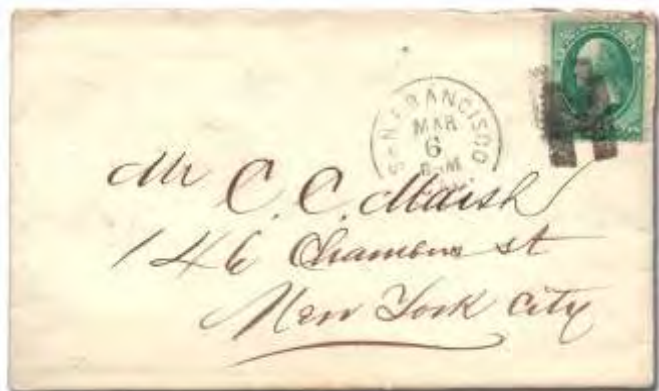 SAN FRANCISCO
MAR
6
Mr C. C. Marsh
146 Chambers st
New York City